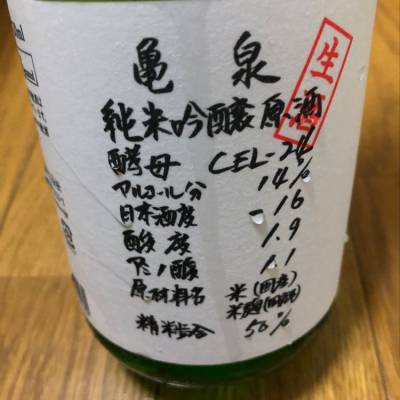 亀泉
純米吟醸原酒
生酒
酵母 CEL-24
アルコール分 14%
日本酒度 -16
酸度 1.9
アミノ酸 1.1
原材料名 米(国産)
米麹(国産米)
精米歩合 50%